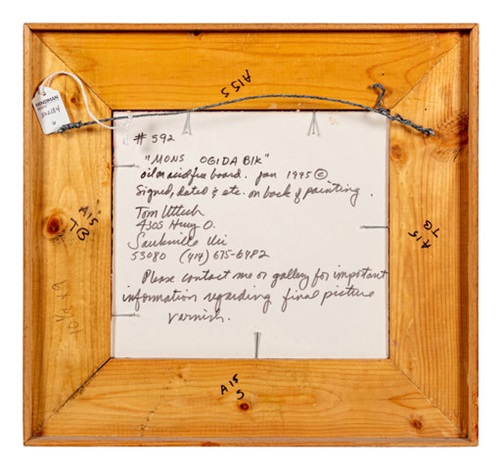 A15 S
HINDMAN
# 592
"MONS OGIDABIK"
oil on acid free board. Jan 1995 ©
Signed, dated & etc. on back of painting.
Tom Uttech
4305 Hwy O.
Saukville Wi
53080 (414) 675-6482
Please contact me or gallery for important
information regarding final picture
varnish.
A15
TG
A15
TG
A15
S